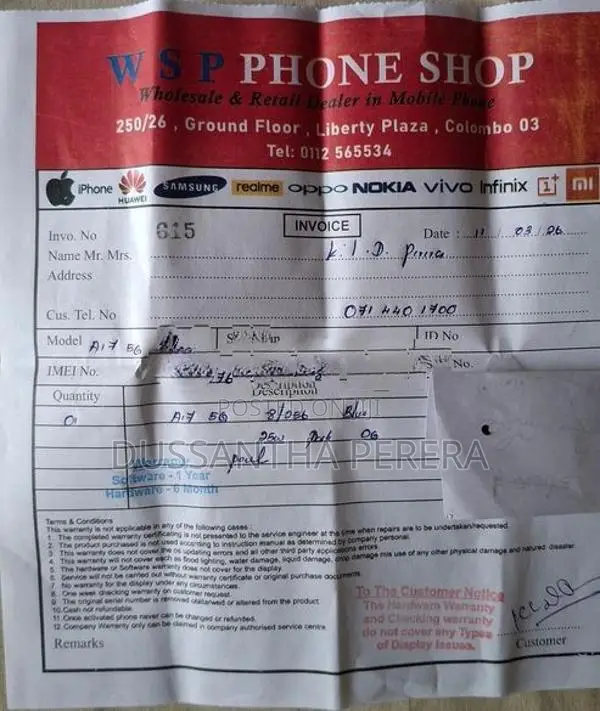 W S P PHONE SHOP
Wholesale & Retail Dealer in Mobile Phone
250/26 , Ground Floor , Liberty Plaza , Colombo 03
Tel: 0112 565534
iPhone HUAWEI SAMSUNG realme oppo NOKIA vivo Infinix 1+ mi
Invo. No 615 INVOICE Date : 11 / 03/26
Name Mr. Mrs. K. I. D.
Address
Cus. Tel No 071 440 1700
Model A17 5G ID No
IMEI No. No.
276
Description
Quantity Description
POSTED ON JIJI
01 A17 5G 8/256 Blue
25W 06
DUSSANTHA PERERA
Warranty
Software - 1 Year
Hardware - 6 Month
Terms & Conditions
This warranty is not applicable in any of the following cases :
1. The completed warranty certificating is not presented to the service engineer at the time when repairs are to be undertaken/requested.
2. The product purchased is not used according to instruction manual as determined by company personal.
3. This warranty does not cover the os updating errors and all other third party applications errors.
4. This warranty will not cover each as flood lighting, water damage, liquid damage, drop damage mis use of any other physical damage and natured disaster
5. The hardware of Software warranty does not cover for the display.
6. Service will not be carried out without warranty certificate or original purchase documents
7. No warranty for the display under any circumstances.
8. One week checking warranty on customer request.
9. The original serial number is removed obliterated or altered from the product.
10. Cash not refundable.
11. Once activated phone never can be changed or refunded.
12. Company Warranty only can be claimed in company authorised service centre.
To The Customer Notice
The Hardware Warranty
and Checking warranty
do not cover any Types
of Display Issues.
Customer
Remarks